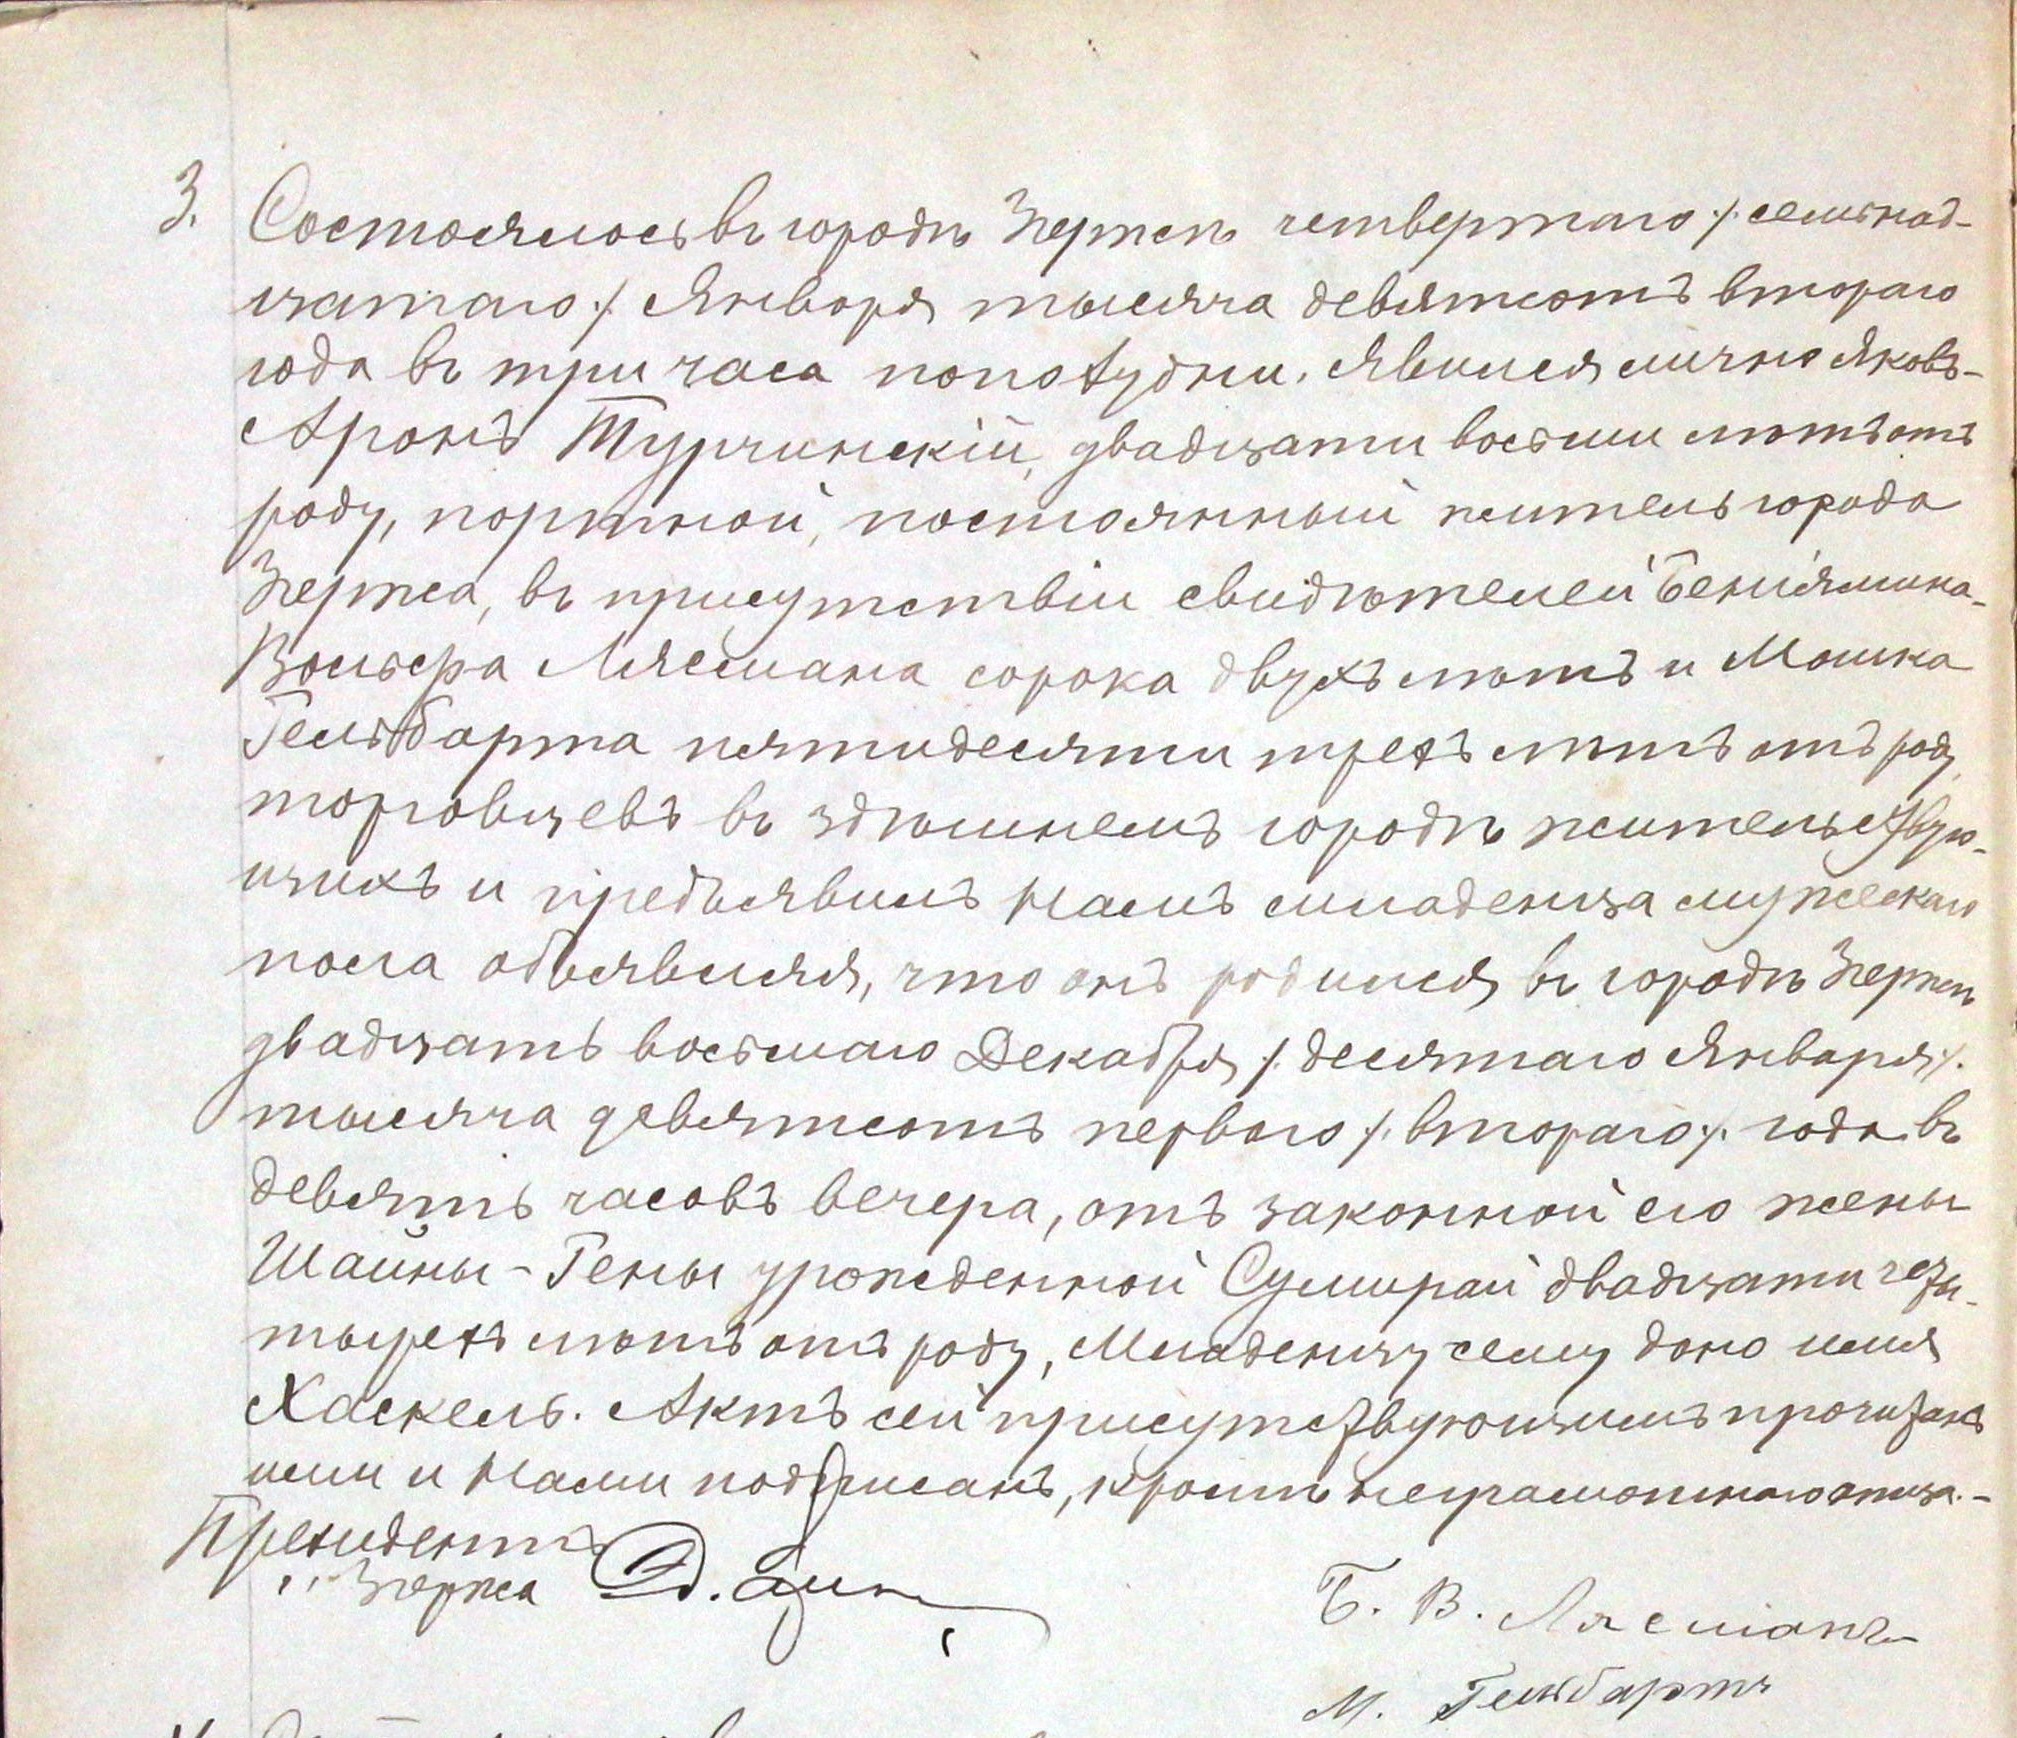 3. Состоялось въ городѣ Згержѣ четвертаго /: семнад-
цатаго :/ Января тысяча девятсотъ втораго
года въ три часа пополудни. Явился лично Яковъ-
Аронъ Турчинскій, двадцати восьми лѣтъ отъ
роду, портной, постоянный житель города
Згержа, въ присутствіи свидѣтелей Беніямина-
Вольфа Лясмана сорока двухъ лѣтъ и Мошка
Гельбарта пятидесяти трехъ лѣтъ отъ роду
торговцевъ въ здѣшнемъ городѣ жительствую-
щихъ и предъявилъ Намъ младенца мужескаго
пола объявляя, что онъ родился въ городѣ Згержѣ
двадцать восьмаго Декабря /: десятаго Января :/
тысяча девятсотъ перваго /: втораго :/ года въ
девять часовъ вечера, отъ законной его жены
Шайны-Гены урожденной Сумирай двадцати че-
тырехъ лѣтъ отъ роду, Младенцу сему дано имя
Хаскель. Актъ сей присутствующимъ прочитанъ
ими и Нами подписанъ, кромѣ неграмотнаго отца.-
Президентъ
г. Згержа
Б. В. Лясманъ
М. Гельбартъ